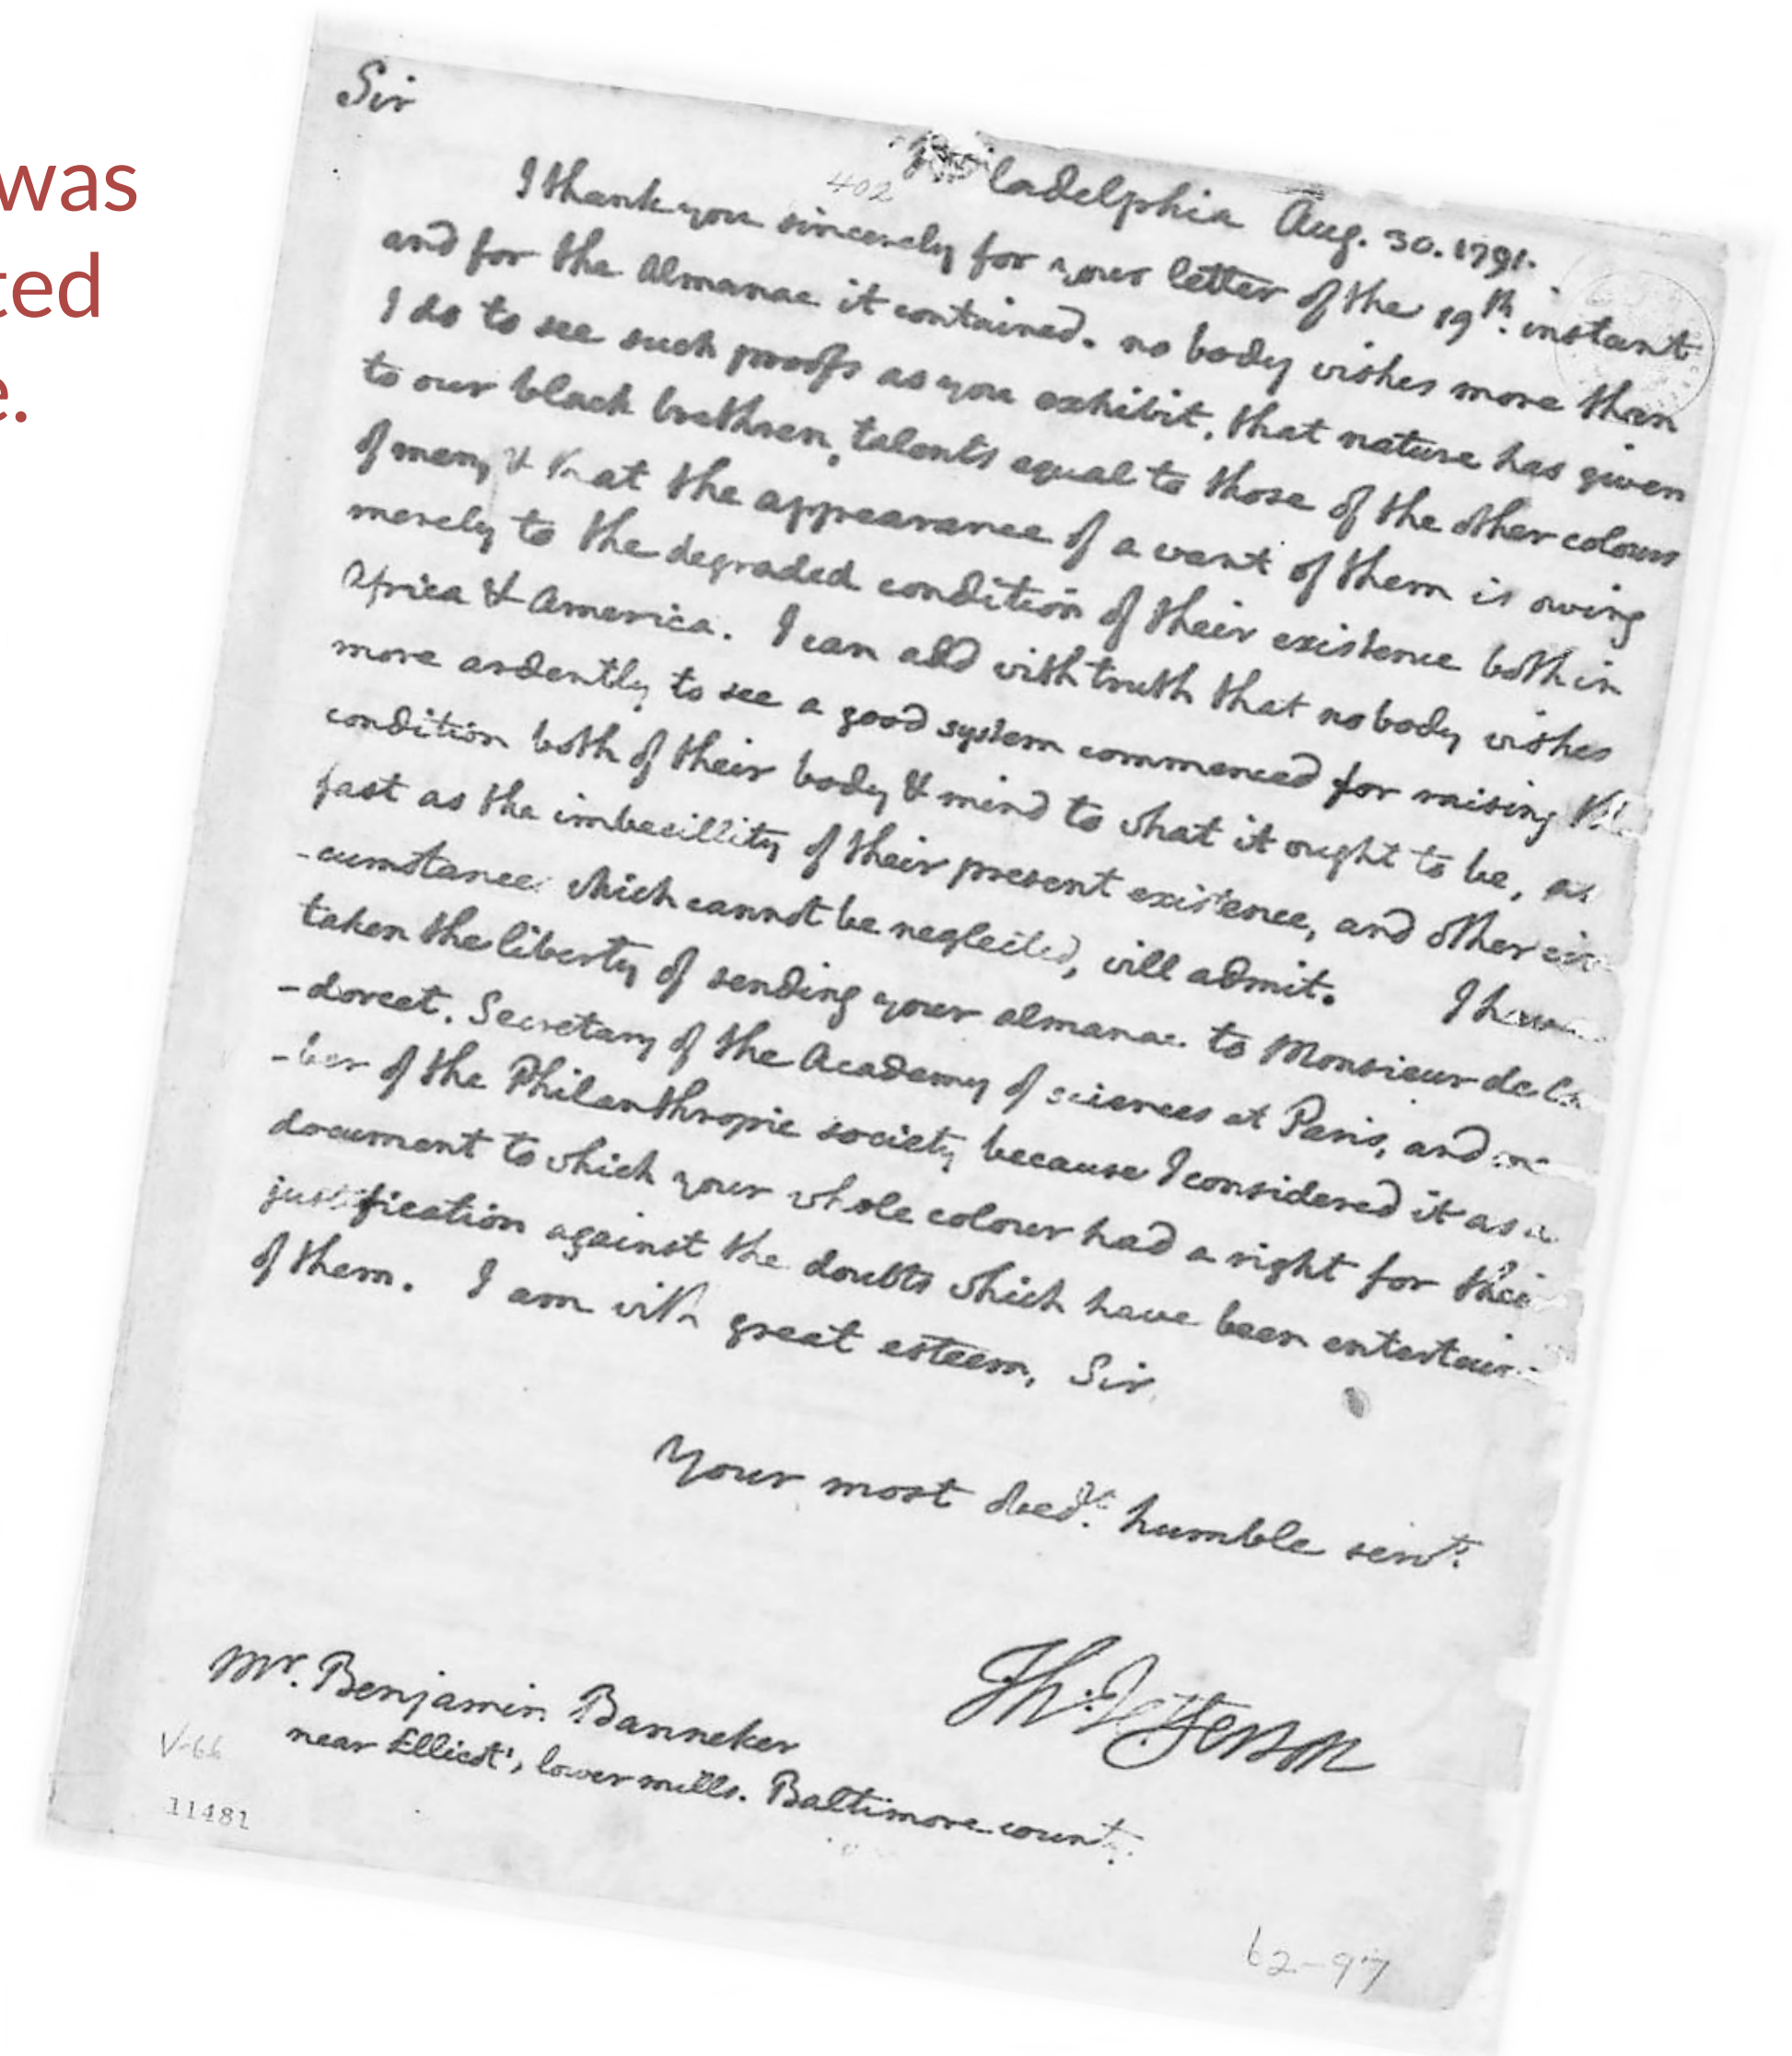 was
ted
e.
Sir
402
Philadelphia Aug. 30. 1791.
I thank you sincerely for your letter of the 19th. instant
and for the Almanac it contained. no body wishes more than
I do to see such proofs as you exhibit, that nature has given
to our black brethren, talents equal to those of the other colours
of men, & that the appearance of a want of them is owing
merely to the degraded condition of their existence both in
Africa & America. I can add with truth that no body wishes
more ardently to see a good system commenced for raising the
condition both of their body & mind to what it ought to be, as
fast as the imbecillity of their present existence, and other cir
-cumstances which cannot be neglected, will admit. I have
taken the liberty of sending your almanac to Monsieur de Con
-dorcet, Secretary of the Academy of sciences at Paris, and
-ber of the Philanthropic society because I considered it as a
document to which your whole colour had a right for their
justification against the doubts which have been entertain
of them. I am with great esteem, Sir
Your most obedt. humble servt.
Th: Jefferson
Mr. Benjamin Banneker
near Ellicot's, lower mills. Baltimore county.
V-66
11481
62-97